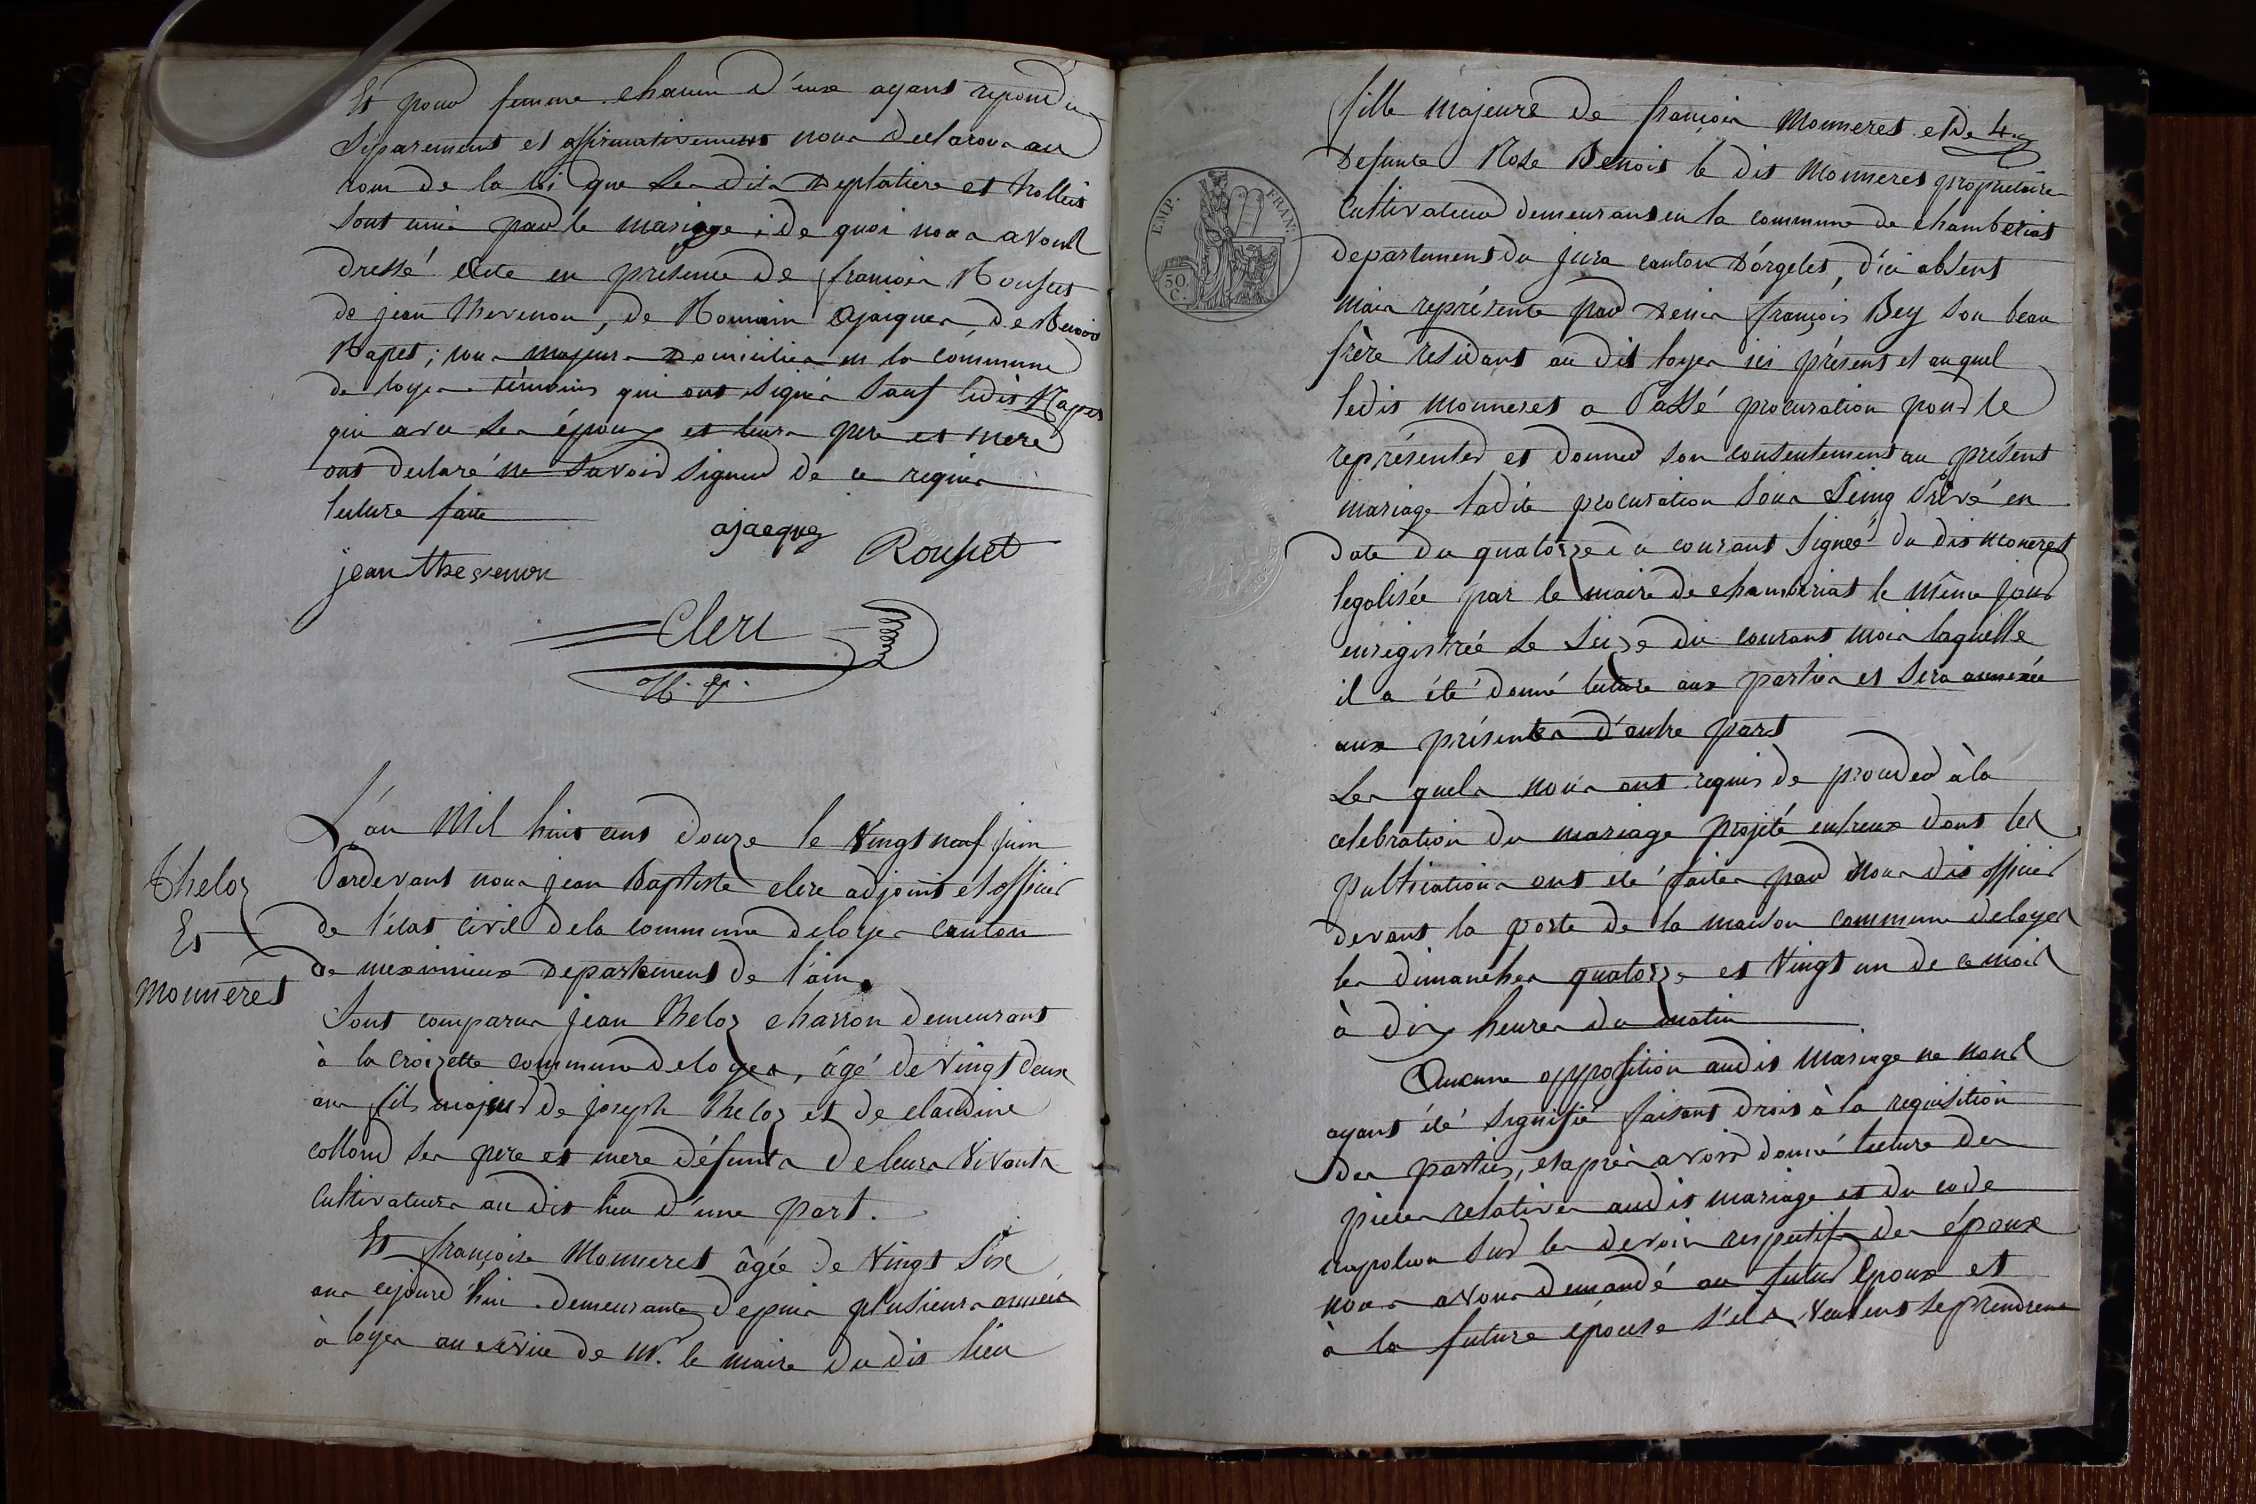 Et pour femme chacun d'eux ayant repondu
Séparement et affirmativement nous declarons au
nom de la loi que les dits Deplatiere et Trolliet
sont unis par le mariage ; de quoi nous avons
dressé acte en presence de françois Rousset
de jean thevenon, de Romain Ajaques, de Benoit
Rapet ; tous majeurs Domiciliés en la commune
de loyes témoins qui ont signés sauf ledit Rapet
qui avec les époux et leurs pere et mere
ont declaré ne savoir signer de ce requis
lecture faite
ajacques
Rousset
jean thevenon
Clerc
Theloz
Et
Monneret
L'an Mil huit cent douze le Vingt neuf juin
Pardevant nous jean Baptiste clerc adjoint et officier
de l'état civil dela commune deloyes canton
de meximieux departement de l'ain.
Sont comparus jean Theloz charron demeurant
à la croizette commune deloyes, âgé de vingt deux
ans fils majeur de joseph theloz et de claudine
collond ses pere et mere défunts de leurs vivants
cultivateurs au dit lieu d'une part.
Et françoise Monneret âgée de Vingt six
ans cejourd'hui demeurante depuis plusieurs années
à loyes au service de Mr. le maire du dit lieu
EMP. FRAN.
50.
C.
fille majeure de françois Monneret et de
Defunte Rose Benoit le dit Monneret propriétaire
cultivateur demeurant en la commune de chamberiat
departement du jura canton d'orgelet, d'ici absent
mais représenté par Denis françois Bey son beau
frère residant au dit loyes ici présent et auquel
ledit Monneret a Passé procuration pour le
représenter et donner son consentement au présent
mariage ladite procuration sous Seing Privé en
date du quatorze du courant signée du dit moneret
legalisée par le maire de chamberiat le même jour
enregistrée le seize du courant mois laquelle
il a été donné lecture aux parties et sera annexée
aux présentes d'autre part
Les quels nous ont requis de proceder à la
celebration du mariage projeté entreux dont les
publications ont été faites par Nous dit officier
devant la porte de la maison commune deloyes
les dimanches quatorze et Vingt un de ce mois
à dix heures du matin
Aucune opposition audit mariage ne nous
ayant été signifié faisant droit à la requisition
des parties, et après avoir donné lecture des
pieces relatives audit mariage et du code
napoleon sur les devoirs respectifs des époux
nous avons demandé au futur Epoux et
à la future épouse s'ils veulent se prendre